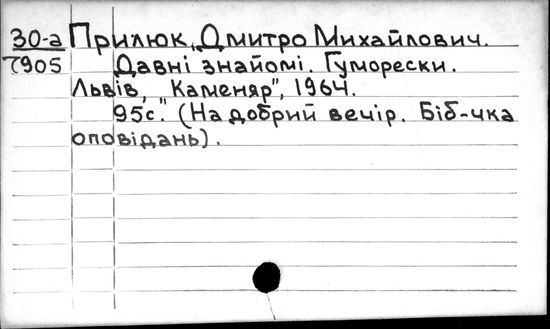 30-а Прилюк, Дмитро Михайлович.
7905 Давні знайомі. Гуморески.
Львів, "Каменяр", 1964.
95с. (На добрий вечір. Біб-чка
оповідань).